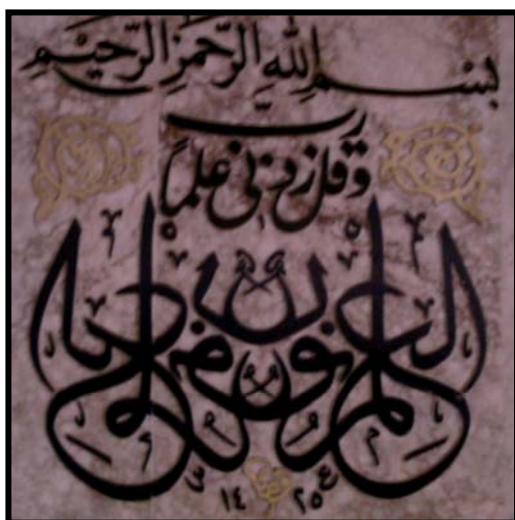 بسم الله الرحمن الرحيم
وقل رب زدني علماً
العلم نور
١٤٢٥